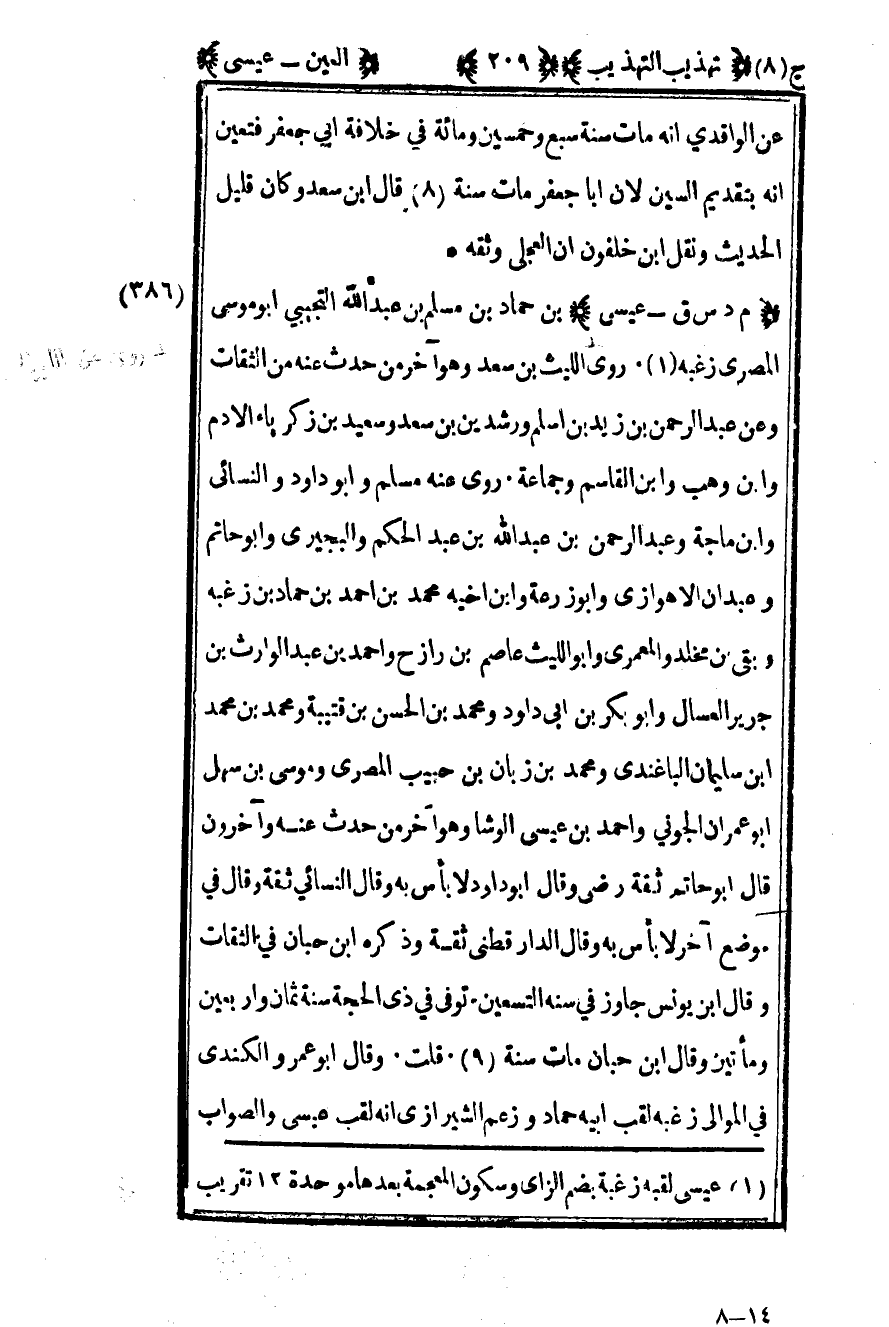 ج (٨) ﴿ تهذيب التهذيب ﴾ ﴿ ٢٠٩ ﴾ ﴿ العين ــ عيسى ﴾
عن الواقدي انه مات سنة سبع وخمسين ومائة في خلافة ابي جعفر فتعين
انه بتقديم السين لان ابا جعفر مات سنة (٨) قال ابن سعد وكان قليل
الحديث ونقل ابن خلفون ان العجلى وثقه ٠
(٣٨٦)
﴿ م د س ق ــ عيسى ﴾ بن حماد بن مسلم بن عبد الله التجيبي ابو موسى
المصرى زغبه (١) ٠ روى الليث بن سعد وهو آخر من حدث عنه من الثقات
وعن عبد الرحمن بن زيد بن اسلم ورشدين بن سعد وسعيد بن زكرياء الادم
وابن وهب وابن القاسم وجماعة ٠ روى عنه مسلم و ابو داود و النسائى
وابن ماجة وعبد الرحمن بن عبد الله بن عبد الحكم والبجيرى وابو حاتم
و عبدان الاهوازى وابو زرعة وابن اخيه محمد بن احمد بن حماد بن زغبه
و بقى بن مخلد والمعمرى وابو الليث عاصم بن رازح واحمد بن عبد الوارث بن
جرير العسال وابو بكر بن ابى داود ومحمد بن الحسن بن قتيبة ومحمد بن محمد
ابن سليمان الباغندى ومحمد بن زبان بن حبيب المصرى وموسى بن سهل
ابو عمران الجوني واحمد بن عيسى الوشا وهو آخر من حدث عنه وآخرون
قال ابو حاتم ثقة رضى وقال ابو داود لا بأس به وقال النسائي ثقة وقال في
موضع آخر لا بأس به وقال الدارقطنى ثقة وذكره ابن حبان في الثقات
و قال ابن يونس جاوز في سنه التسعين ٠ توفى في ذى الحجة سنة ثمان واربعين
ومأتين وقال ابن حبان مات سنة (٩) ٠ قلت ٠ وقال ابو عمرو الكندى
في الموالى زغبه لقب ابيه حماد و زعم الشيرازى انه لقب عيسى والصواب
(١) عيسى لقبه زغبة بضم الزاى وسكون المعجمة بعدها موحدة ١٢ تقريب
١٤ــ٨